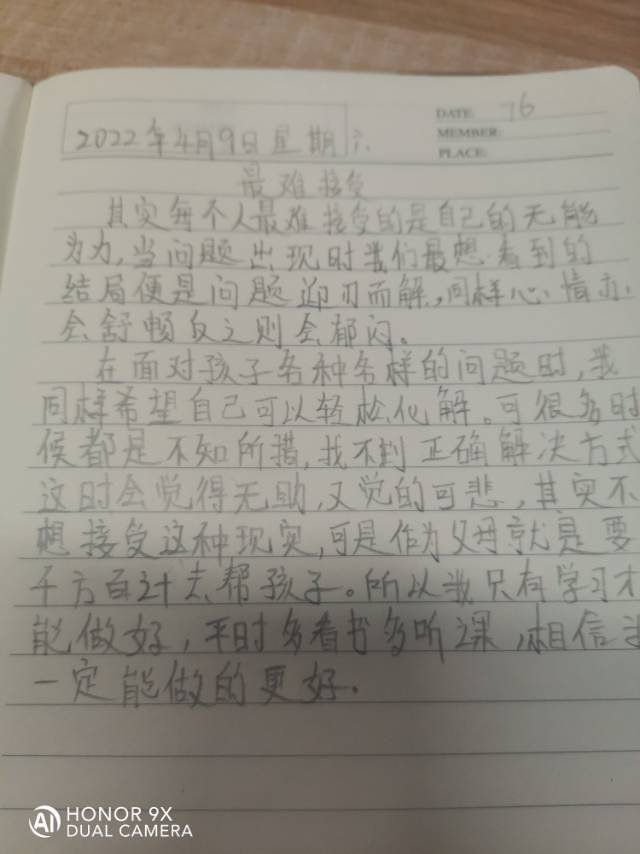 DATE: 76
MEMBER:
PLACE:
2022年4月9日星期六
最难接受
其实每个人最难接受的是自己的无能
为力,当问题出现时我们最想看到的
结局便是问题迎刃而解,同样心情亦
会舒畅反之则会郁闷。
在面对孩子各种各样的问题时,我
同样希望自己可以轻松化解。可很多时
候都是不知所措,找不到正确解决方式
这时会觉得无助,又觉的可悲,其实不
想接受这种现实,可是作为父母就是要
千方百计去帮孩子。所以我只有学习才
能做好,平时多看书多听课,相信
一定能做的更好.
HONOR 9X
DUAL CAMERA